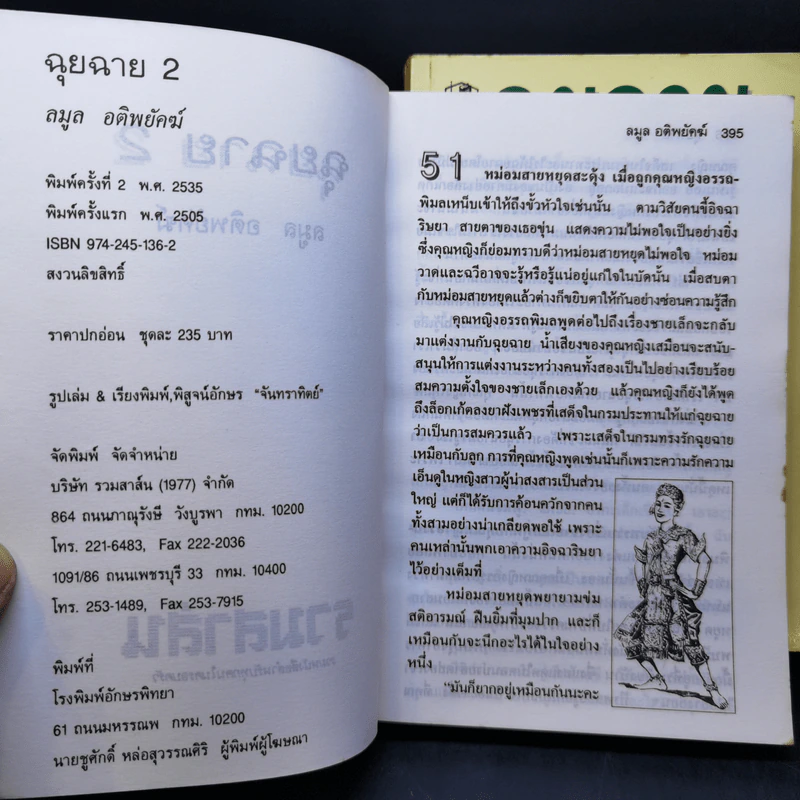 ฉุยฉาย 2
ลมูล อติพยัคฆ์
พิมพ์ครั้งที่ 2 พ.ศ. 2535
พิมพ์ครั้งแรก พ.ศ. 2505
ISBN 974-245-136-2
สงวนลิขสิทธิ์
ราคาปกอ่อน ชุดละ 235 บาท
รูปเล่ม & เรียงพิมพ์,พิสูจน์อักษร "จันทราทิตย์"
จัดพิมพ์ จัดจำหน่าย
บริษัท รวมสาส์น (1977) จำกัด
864 ถนนภาณุรังษี วังบูรพา กทม. 10200
โทร. 221-6483, Fax 222-2036
1091/86 ถนนเพชรบุรี 33 กทม. 10400
โทร. 253-1489, Fax 253-7915
พิมพ์ที่
โรงพิมพ์อักษรพิทยา
61 ถนนมหรรณพ กทม. 10200
นายชูศักดิ์ หล่อสุวรรณศิริ ผู้พิมพ์ผู้โฆษณา
ลมูล อติพยัคฆ์ 395
51 หม่อมสายหยุดสะดุ้ง เมื่อถูกคุณหญิงอรรถ-
พิมลเหน็บเข้าให้ถึงขั้วหัวใจเช่นนั้น ตามวิสัยคนขี้อิจฉา
ริษยา สายตาของเธอขุ่น แสดงความไม่พอใจเป็นอย่างยิ่ง
ซึ่งคุณหญิงก็ย่อมทราบดีว่าหม่อมสายหยุดไม่พอใจ หม่อม
วาดและฉวีอาจจะรู้หรือรู้แน่อยู่แก่ใจในบัดนั้น เมื่อสบตา
กับหม่อมสายหยุดแล้วต่างก็ขยิบตาให้กันอย่างซ่อนความรู้สึก
คุณหญิงอรรถพิมลพูดต่อไปถึงเรื่องชายเล็กจะกลับ
มาแต่งงานกับฉุยฉาย น้ำเสียงของคุณหญิงเสมือนจะสนับ-
สนุนให้การแต่งงานระหว่างคนทั้งสองเป็นไปอย่างเรียบร้อย
สมความตั้งใจของชายเล็กเองด้วย แล้วคุณหญิงก็ยังได้พูด
ถึงล็อกเก้ตลงยาฝังเพชรที่เสด็จในกรมประทานให้แก่ฉุยฉาย
ว่าเป็นการสมควรแล้ว เพราะเสด็จในกรมทรงรักฉุยฉาย
เหมือนกับลูก การที่คุณหญิงพูดเช่นนั้นก็เพราะความรักความ
เอ็นดูในหญิงสาวผู้น่าสงสารเป็นส่วน
ใหญ่ แต่ก็ได้รับการค้อนควักจากคน
ทั้งสามอย่างน่าเกลียดพอใช้ เพราะ
คนเหล่านั้นพกเอาความอิจฉาริษยา
ไว้อย่างเต็มที่
หม่อมสายหยุดพยายามข่ม
สติอารมณ์ ฝืนยิ้มที่มุมปาก และก็
เหมือนกับจะนึกอะไรได้ในใจอย่าง
หนึ่ง
"มันก็ยากอยู่เหมือนกันนะคะ